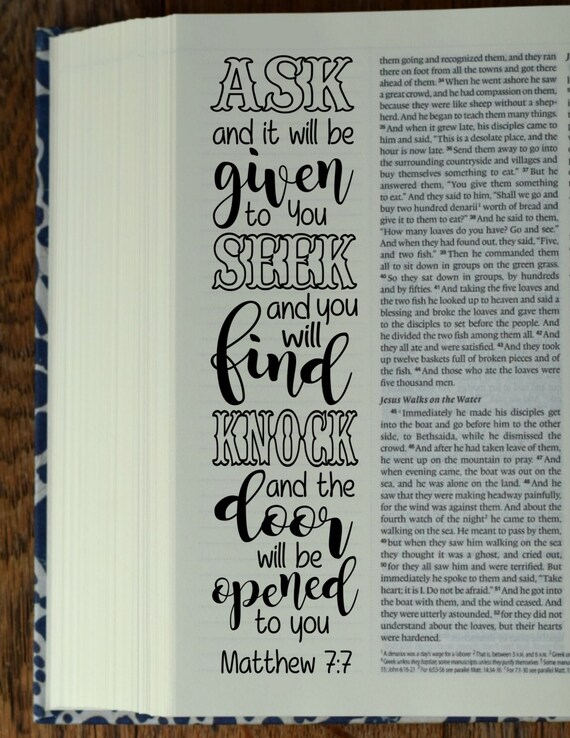 ASK
and it will be
given
to you
SEEK
and you
will
find
KNOCK
and the
door
will be
opened
to you
Matthew 7:7
them going and recognized them, and they ran
there on foot from all the towns and got there
ahead of them. 34 When he went ashore he saw
a great crowd, and he had compassion on them,
because they were like sheep without a shep-
herd. And he began to teach them many things.
35 And when it grew late, his disciples came to
him and said, "This is a desolate place, and the
hour is now late. 36 Send them away to go into
the surrounding countryside and villages and
buy themselves something to eat." 37 But he
answered them, "You give them something
to eat." And they said to him, "Shall we go and
buy two hundred denarii¹ worth of bread and
give it to them to eat?" 38 And he said to them,
"How many loaves do you have? Go and see."
And when they had found out, they said, "Five,
and two fish." 39 Then he commanded them
all to sit down in groups on the green grass.
40 So they sat down in groups, by hundreds
and by fifties. 41 And taking the five loaves and
the two fish he looked up to heaven and said a
blessing and broke the loaves and gave them
to the disciples to set before the people. And
he divided the two fish among them all. 42 And
they all ate and were satisfied. 43 And they took
up twelve baskets full of broken pieces and of
the fish. 44 And those who ate the loaves were
five thousand men.
Jesus Walks on the Water
45 Immediately he made his disciples get
into the boat and go before him to the other
side, to Bethsaida, while he dismissed the
crowd. 46 And after he had taken leave of them,
he went up on the mountain to pray. 47 And
when evening came, the boat was out on the
sea, and he was alone on the land. 48 And he
saw that they were making headway painfully,
for the wind was against them. And about the
fourth watch of the night² he came to them,
walking on the sea. He meant to pass by them,
49 but when they saw him walking on the sea
they thought it was a ghost, and cried out,
50 for they all saw him and were terrified. But
immediately he spoke to them and said, "Take
heart; it is I. Do not be afraid." 51 And he got into
the boat with them, and the wind ceased. And
they were utterly astounded, 52 for they did not
understand about the loaves, but their hearts
were hardened.
¹ A denarius was a day's wage for a laborer ² That is, between 3 A.M. and 6 A.M.